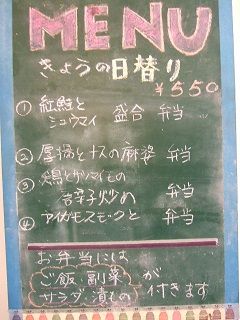 MENU
きょうの日替り
¥550
① 紅鮭と
シュウマイ 盛合 弁当
② 厚揚とナスの麻婆 弁当
③ 鶏とサツマイモの
辛子炒め 弁当
④ アイガモスモークと 弁当
お弁当には
ご飯・副菜 が
サラダ、漬もの 付きます